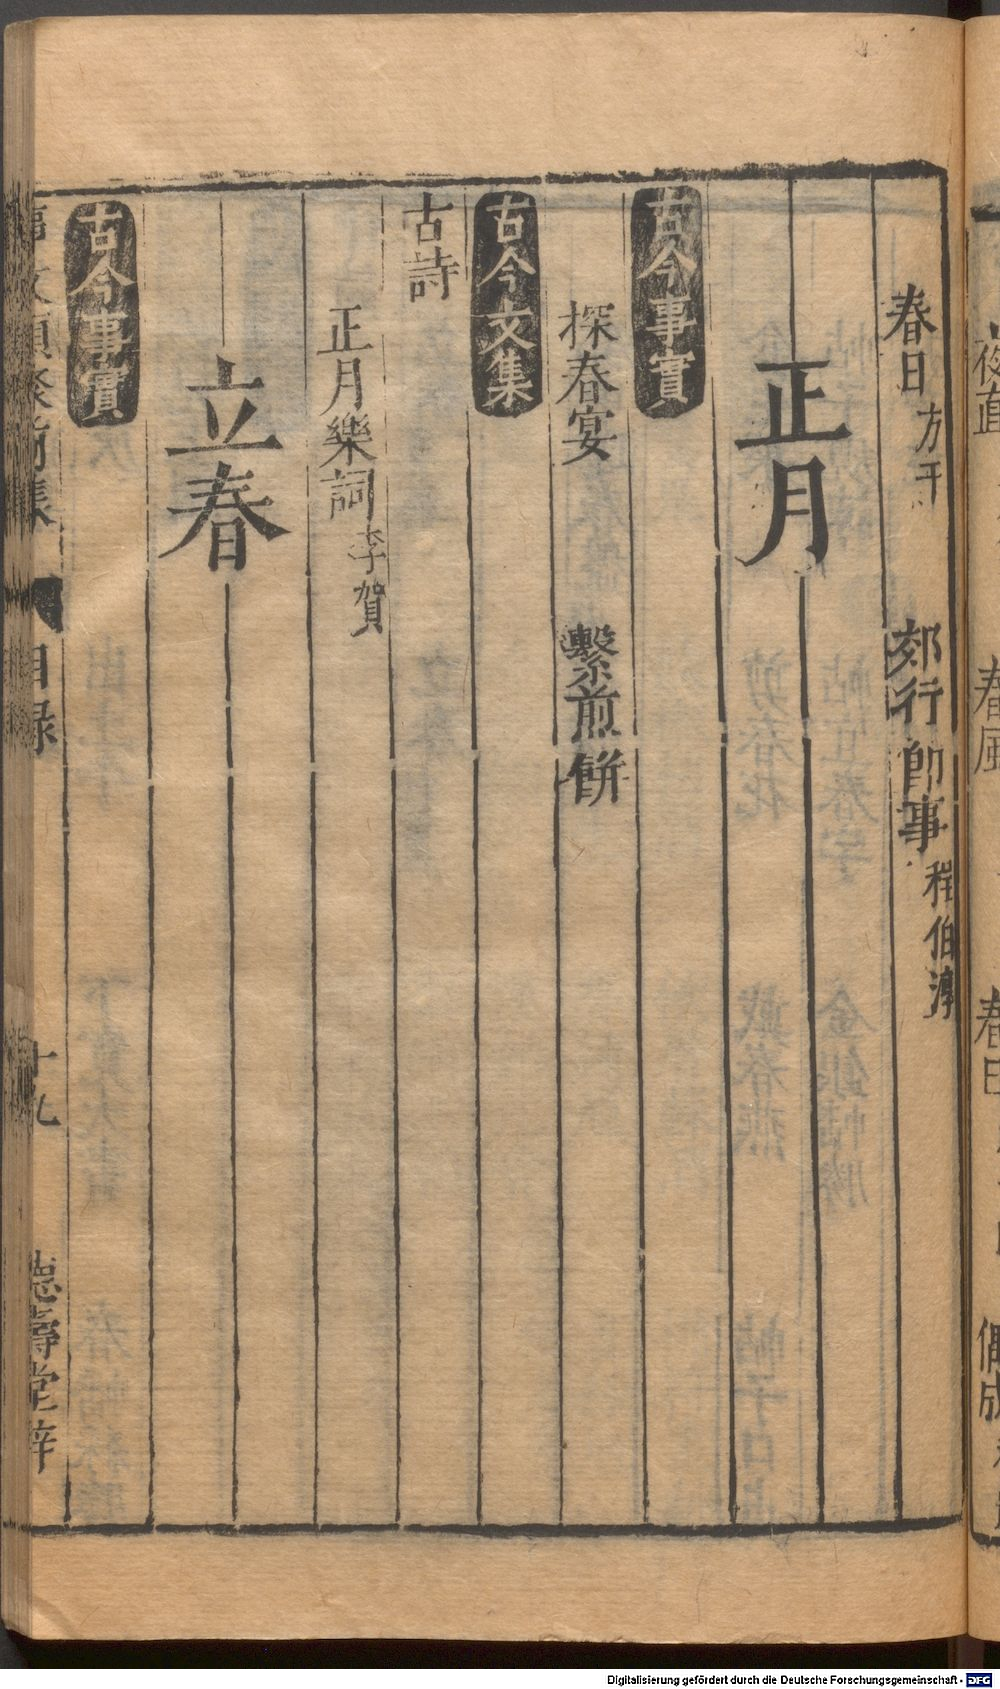 春日 方干 郊行卽事 程伯淳
正月
古今事實
探春宴 繫煎餅
古今文集
古詩
正月樂詞 李賀
立春
古今事實
事文類聚前集 目錄 十九 德壽堂梓
春風
春日
偶成
Digitalisierung gefördert durch die Deutsche Forschungsgemeinschaft - DFG